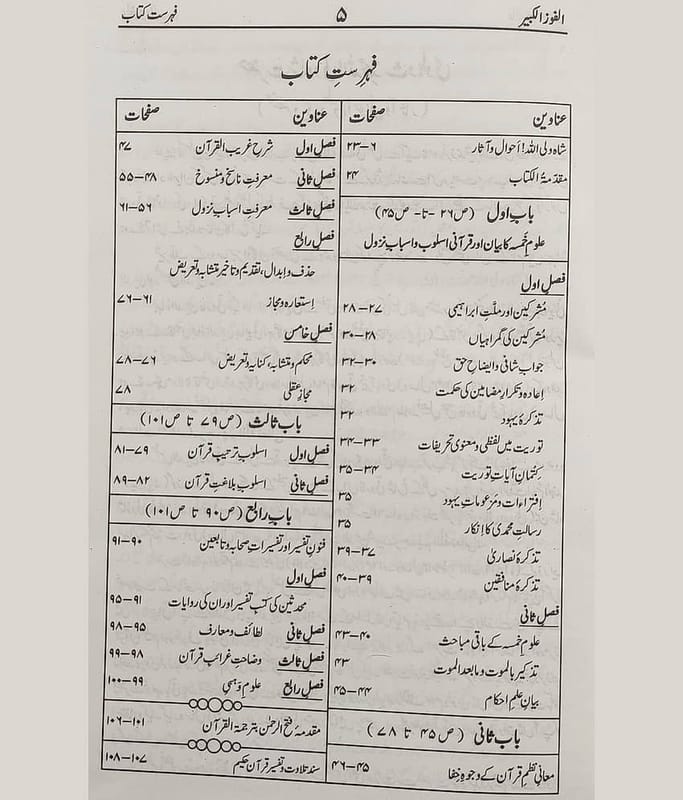 الفوز الکبیر ۵ فہرست کتاب
فہرستِ کتاب
عناوین صفحات
شاہ ولی اللہ! اَحوال و آثار ۶–۲۳
مقدمۃ الکتاب ۲۴
بابِ اول (ص۲۶ -تا- ص۴۵)
علومِ خمسہ کا بیان اور قرآنی اسلوب و اسبابِ نزول
فصلِ اول
مُشرکین اور ملّتِ ابراہیمی ۲۷–۲۸
مُشرکین کی گمراہیاں ۲۸–۳۰
جوابِ شافی و ایضاحِ حق ۳۰–۳۲
اِعادہ و تکرارِ مضامین کی حکمت ۳۲
تذکرۂ یہود ۳۲
توریت میں لفظی و معنوی تحریفات ۳۳–۳۴
کِتمانِ آیاتِ توریت ۳۴–۳۵
اِفتراءات و مزعوماتِ یہود ۳۵
رسالتِ محمدی کا اِنکار ۳۵
تذکرۂ نصاریٰ ۳۷–۳۹
تذکرۂ منافقین ۳۹–۴۰
فصلِ ثانی
علومِ خمسہ کے باقی مباحث ۴۰–۴۳
تذکیر بالموت و مابعد الموت ۴۳
بیانِ علمِ احکام ۴۴–۴۵
بابِ ثانی (ص۴۵ تا ۷۸)
معانی نظمِ قرآن کے وجوہِ خِفا ۴۵–۴۶
عناوین صفحات
فصلِ اول شرحِ غریب القرآن ۴۷
فصلِ ثانی معرفتِ ناسخ و منسوخ ۴۸–۵۵
فصلِ ثالث معرفتِ اسبابِ نزول ۵۶–۶۱
فصلِ رابع
حذف و اِبدال، تقدیم و تاخیر متشابہ و تعریض
اِستعارہ و مجاز ۶۱–۷۶
فصلِ خامس
محکم و متشابہ، کنایہ و تعریض ۷۶–۷۸
مجازِ عقلی ۷۸
بابِ ثالث (ص۷۹ تا ص۱۰۱)
فصلِ اول اسلوبِ ترتیبِ قرآن ۷۹–۸۱
فصلِ ثانی اسلوبِ بلاغتِ قرآن ۸۲–۸۹
بابِ رابع (ص۹۰ تا ص۱۰۱)
فنونِ تفسیر اور تفسیراتِ صحابہ و تابعین ۹۰–۹۱
فصلِ اول
محدثین کی کتبِ تفسیر اور ان کی روایات ۹۱–۹۵
فصلِ ثانی لطائف و معارف ۹۵–۹۸
فصلِ ثالث وضاحتِ غرائبِ قرآن ۹۸–۹۹
فصلِ رابع علومِ وَہبی ۹۹–۱۰۰
مقدمہ فتح الرحمٰن بترجمۃ القرآن ۱۰۱–۱۰۶
سندِ تلاوت و تفسیر قرآن حکیم ۱۰۷–۱۰۸